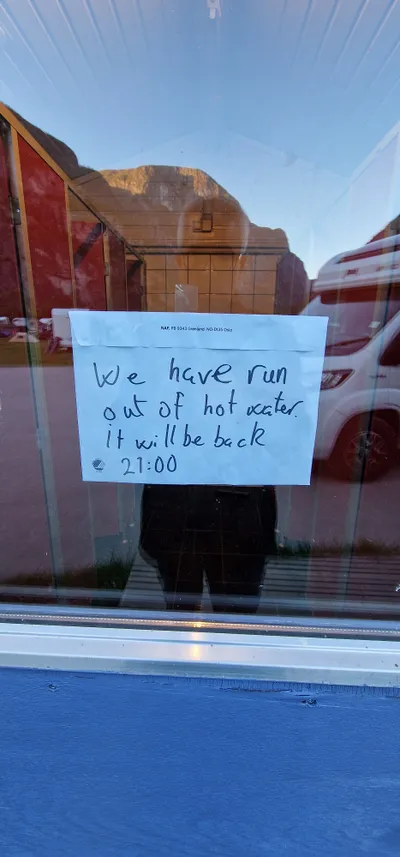 We have run
out of hot water.
it will be back
21:00